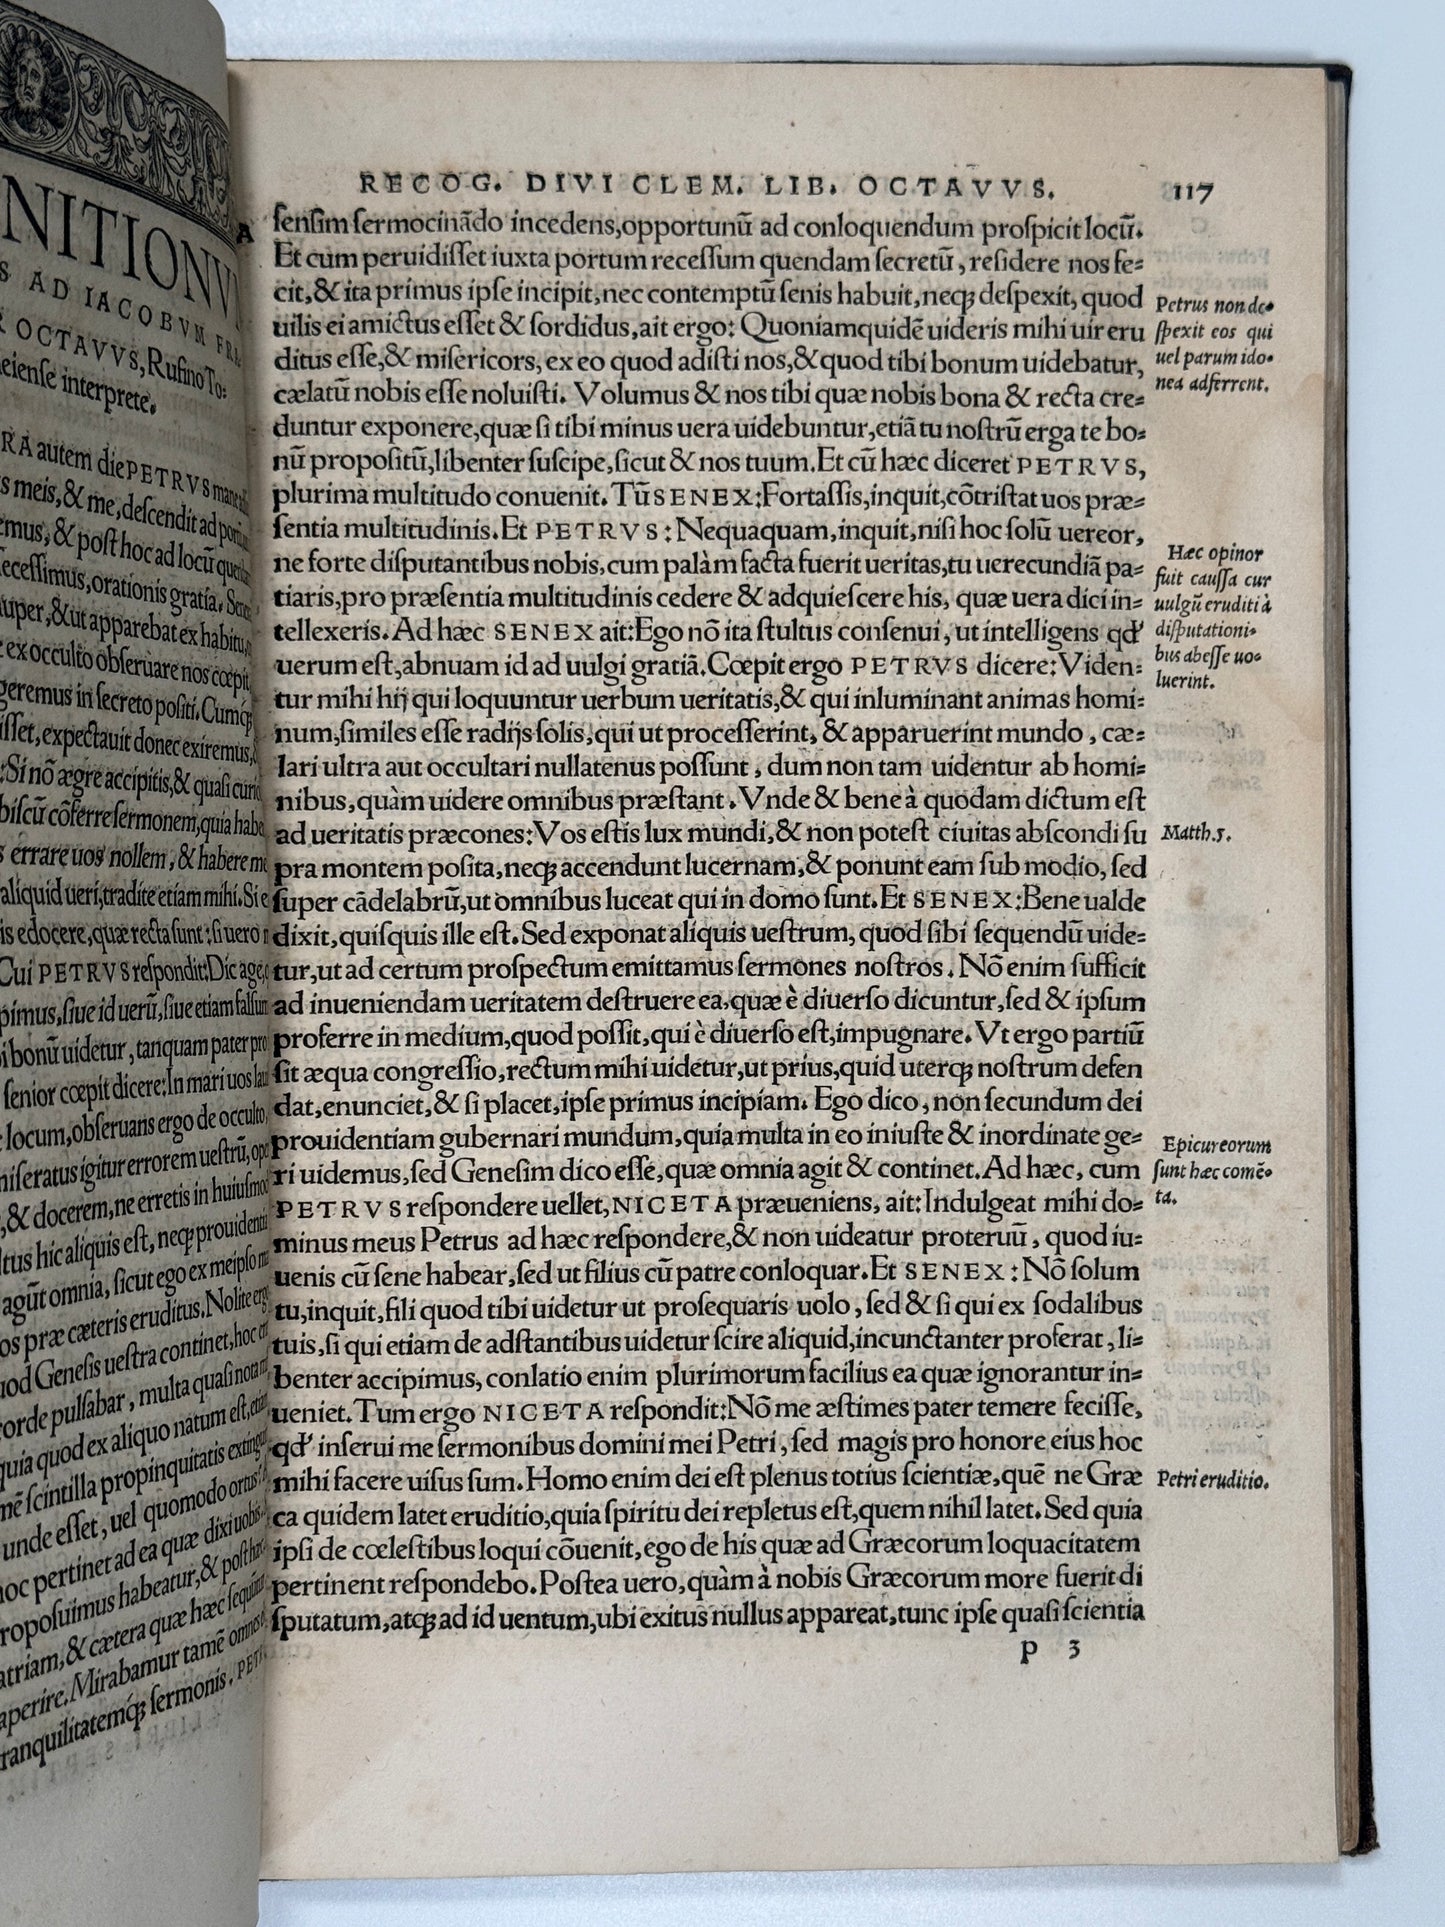 NITIONV
S AD IACOBVM FRA
OCTAVVS, Rufino To:
eiense interprete.
RA autem die PETRVS mane
s meis, & me, descendit ad portum
emus, & post hoc ad locū
ecessimus, orationis gratia.
uper, & ut apparebat ex habitu,
ex occulto obseruare nos cœpit
geremus in secreto positi. Cumq́;
isset, expectauit donec exiremus,
: Si nō ægre accipitis, & quasi
biscū cōferre sermonem, quia habe
s errare uos nollem, & habere
aliquid ueri, tradite etiam mihi. Si e
is edocere, quæ recta sunt: si uero
Cui PETRVS respondit: Dic age,
pimus, siue id uerū, siue etiam falsum
i bonū uidetur, tanquam pater pro
senior cœpit dicere: In mari uos
locum, obseruans ergo de occulto,
miseratus igitur errorem uestrū,
, & docerem, ne erretis in huiusmodi
ltus hic aliquis est, neq; prouidenti
agūt omnia, sicut ego ex meipso
os præ cæteris eruditus. Nolite ergo
uod Genesis uestra continet, hoc
orde pulsabar, multa quasi nota
quia quod ex aliquo natum est,
mē scintilla propinquitatis
unde esset, uel quomodo ortus:
hoc pertinet ad ea quæ dixi uobis
roposuimus habeatur, & post hæc
atriam, & cætera quæ hæc
aperire. Mirabamur tamē omnes
ranquilitatemq́; sermonis. PET
RECOG. DIVI CLEM. LIB. OCTAVVS. 117
A
sensim sermocinādo incedens, opportunū ad conloquendum prospicit locū.
Et cum peruidisset iuxta portum recessum quendam secretū, residere nos fe=
cit, & ita primus ipse incipit, nec contemptū senis habuit, neq; despexit, quod
uilis ei amictus esset & sordidus, ait ergo: Quoniamquidē uideris mihi uir eru
ditus esse, & misericors, ex eo quod adisti nos, & quod tibi bonum uidebatur,
cælatū nobis esse noluisti. Volumus & nos tibi quæ nobis bona & recta cre=
duntur exponere, quæ si tibi minus uera uidebuntur, etiā tu nostrū erga te bo=
nū propositū, libenter suscipe, sicut & nos tuum. Et cū hæc diceret PETRVS,
plurima multitudo conuenit. Tū SENEX: Fortassis, inquit, cōtristat uos præ=
sentia multitudinis. Et PETRVS: Nequaquam, inquit, nisi hoc solū uereor,
ne forte disputantibus nobis, cum palàm facta fuerit ueritas, tu uerecundiā pa=
tiaris, pro præsentia multitudinis cedere & adquiescere his, quæ uera dici in=
tellexeris. Ad hæc SENEX ait: Ego nō ita stultus consenui, ut intelligens qđ
uerum est, abnuam id ad uulgi gratiā. Cœpit ergo PETRVS dicere: Viden=
tur mihi hij qui loquuntur uerbum ueritatis, & qui inluminant animas homi=
num, similes esse radijs solis, qui ut processerint, & apparuerint mundo, cæ=
lari ultra aut occultari nullatenus possunt, dum non tam uidentur ab homi=
nibus, quàm uidere omnibus præstant. Vnde & bene à quodam dictum est
ad ueritatis præcones: Vos estis lux mundi, & non potest ciuitas abscondi su
pra montem posita, neq; accendunt lucernam, & ponunt eam sub modio, sed
super cādelabrū, ut omnibus luceat qui in domo sunt. Et SENEX: Bene ualde
dixit, quisquis ille est. Sed exponat aliquis uestrum, quod sibi sequendū uide=
tur, ut ad certum prospectum emittamus sermones nostros. Nō enim sufficit
ad inueniendam ueritatem destruere ea, quæ è diuerso dicuntur, sed & ipsum
proferre in medium, quod possit, qui è diuerso est, impugnare. Vt ergo partiū
sit æqua congressio, rectum mihi uidetur, ut prius, quid uterq; nostrum defen
dat, enunciet, & si placet, ipse primus incipiam. Ego dico, non secundum dei
prouidentiam gubernari mundum, quia multa in eo iniuste & inordinate ge=
ri uidemus, sed Genesim dico esse, quæ omnia agit & continet. Ad hæc, cum
PETRVS respondere uellet, NICETA præueniens, ait: Indulgeat mihi do=
minus meus Petrus ad hæc respondere, & non uideatur proteruū, quod iu=
uenis cū sene habear, sed ut filius cū patre conloquar. Et SENEX: Nō solum
tu, inquit, fili quod tibi uidetur ut prosequaris uolo, sed & si qui ex sodalibus
tuis, si qui etiam de adstantibus uidetur scire aliquid, incunctanter proferat, li=
benter accipimus, conlatio enim plurimorum facilius ea quæ ignorantur in=
ueniet. Tum ergo NICETA respondit: Nō me æstimes pater temere fecisse,
qđ inserui me sermonibus domini mei Petri, sed magis pro honore eius hoc
mihi facere uisus sum. Homo enim dei est plenus totius scientiæ, quē ne Græ
ca quidem latet eruditio, quia spiritu dei repletus est, quem nihil latet. Sed quia
ipsi de cœlestibus loqui cōuenit, ego de his quæ ad Græcorum loquacitatem
pertinent respondebo. Postea uero, quàm à nobis Græcorum more fuerit di
sputatum, atq; ad id uentum, ubi exitus nullus appareat, tunc ipse quasi scientia
P 3
Petrus non de=
spexit eos qui
uel parum ido=
nea adferrent.
Hæc opinor
fuit caussa cur
uulgū eruditi à
disputationi=
bus abesse uo=
luerint.
Matth.5.
Epicureorum
sunt hæc comē=
ta.
Petri eruditio.